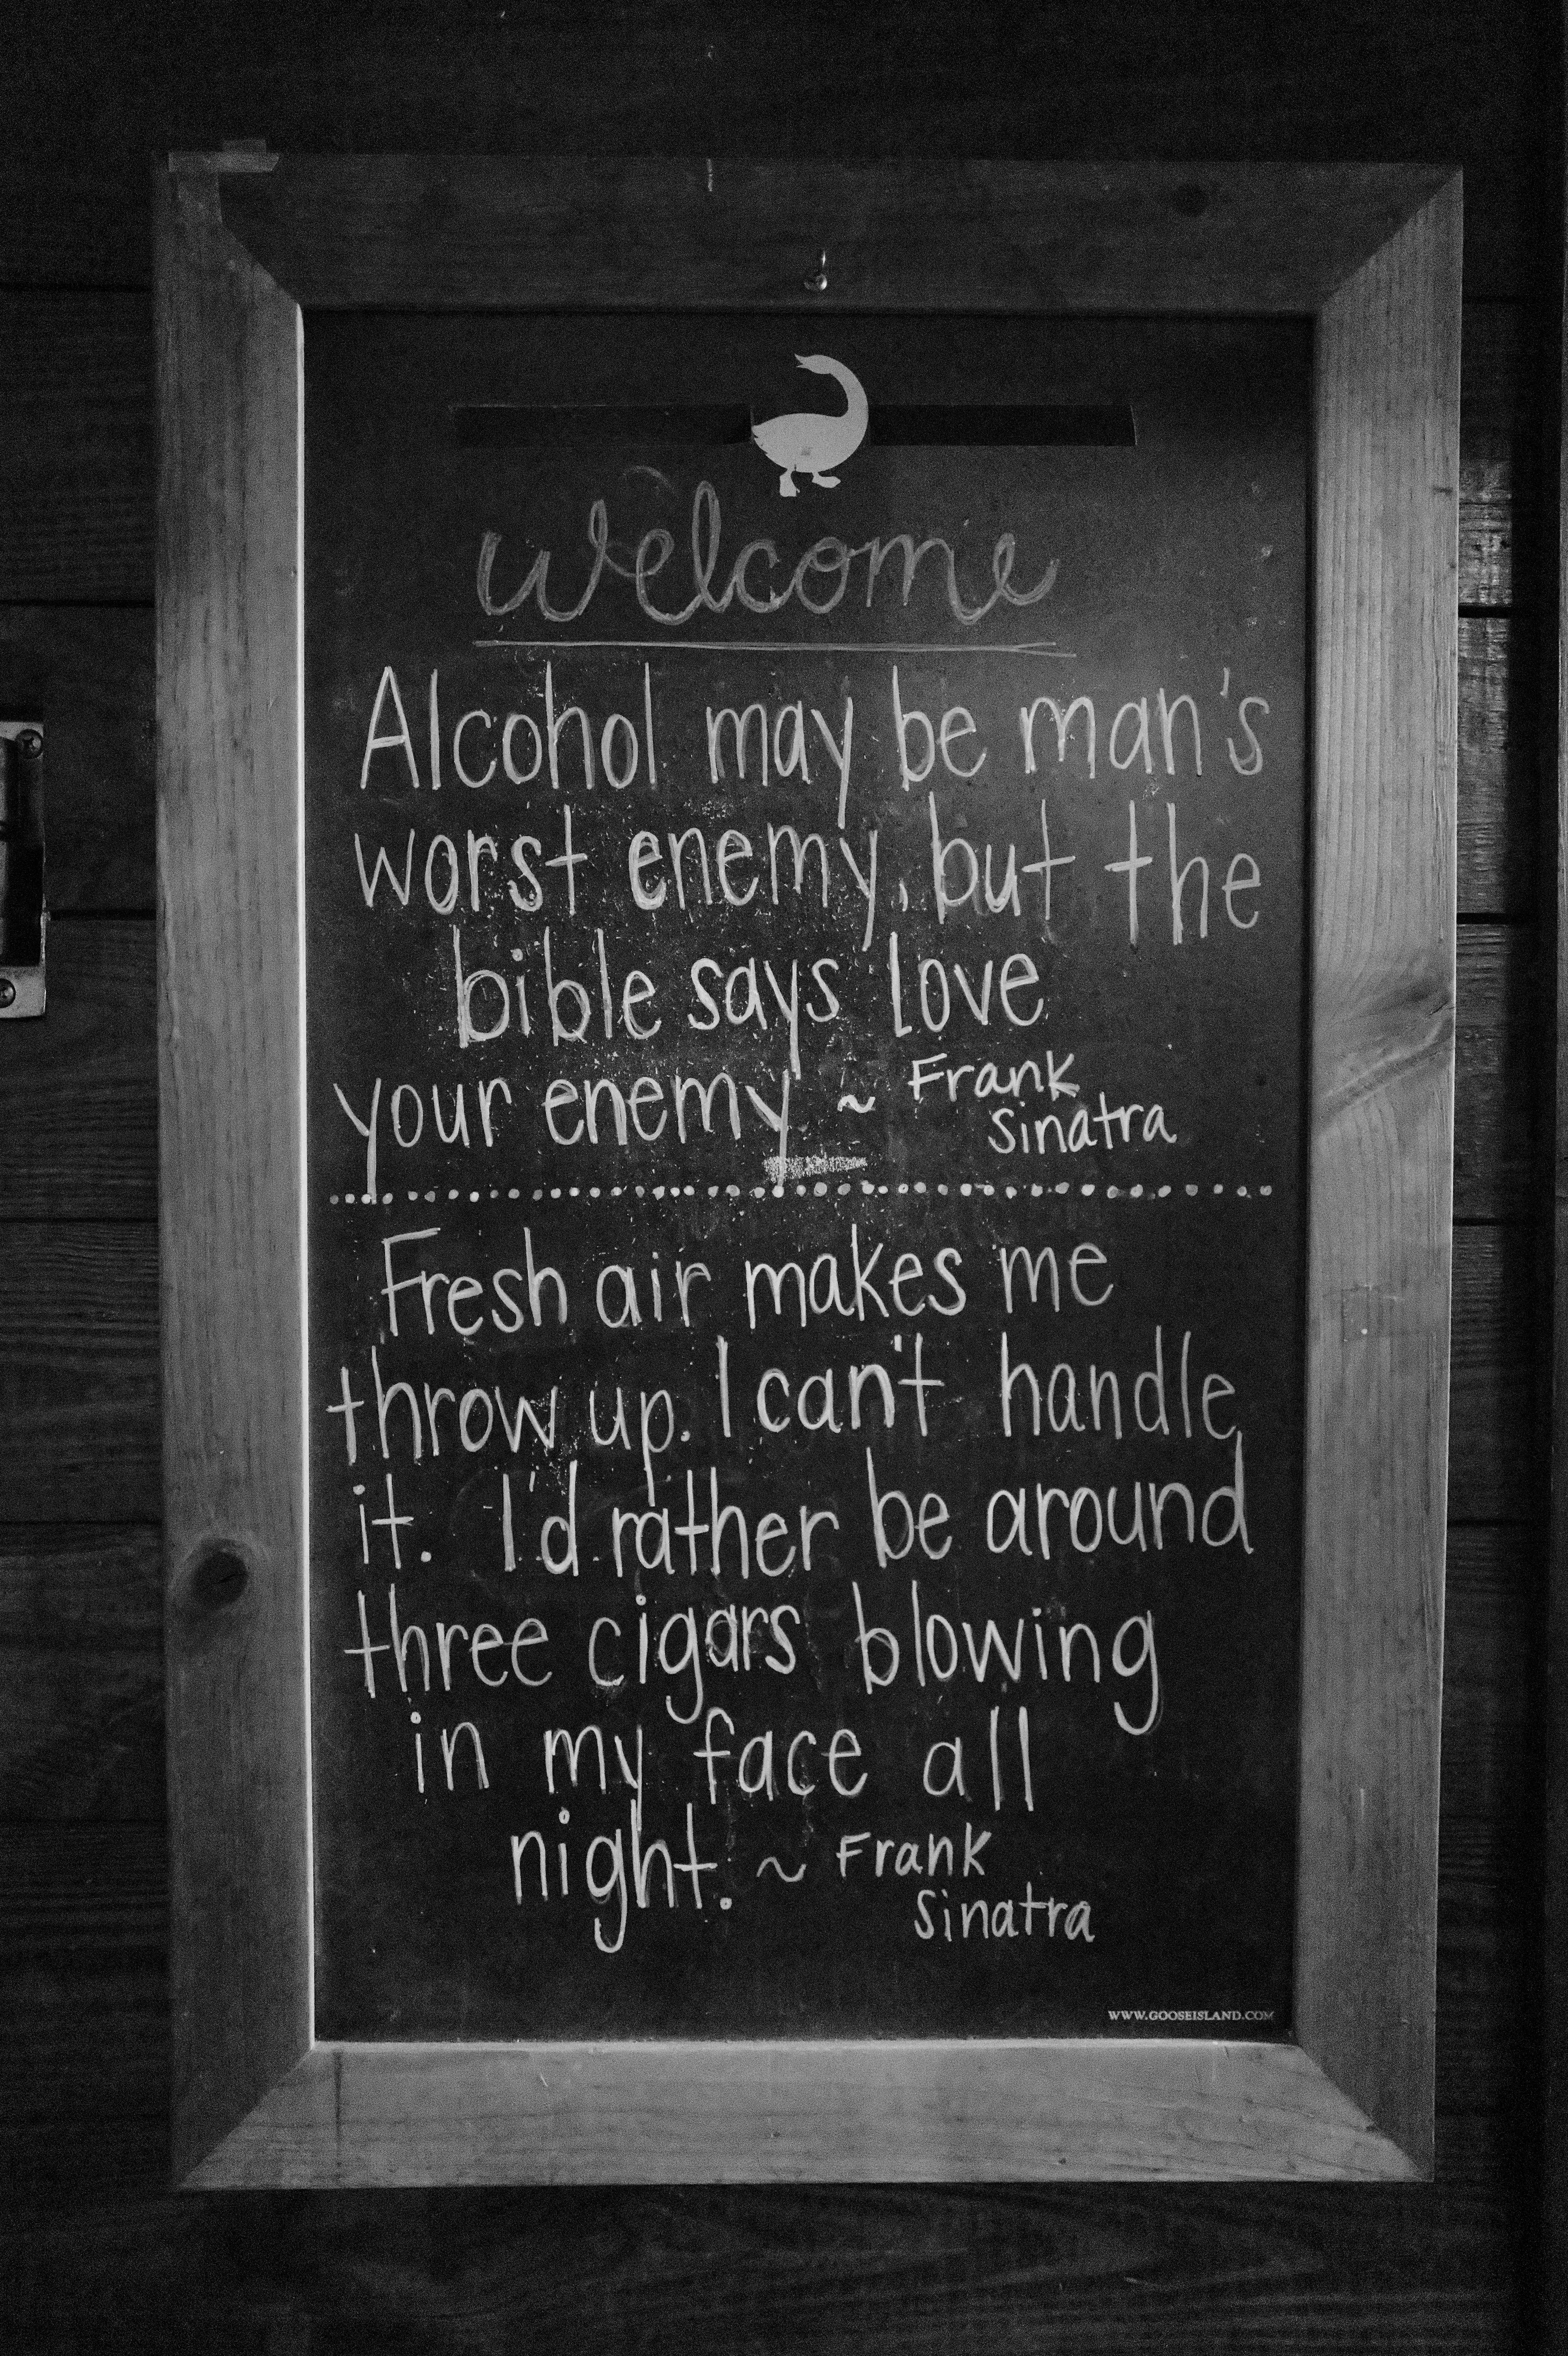 welcome
Alcohol may be man's
worst enemy, but the
bible says love
your enemy ~ Frank
Sinatra
Fresh air makes me
throw up. I can't handle
it. I'd rather be around
three cigars blowing
in my face all
night. ~ Frank
Sinatra
WWW.GOOSEISLAND.COM